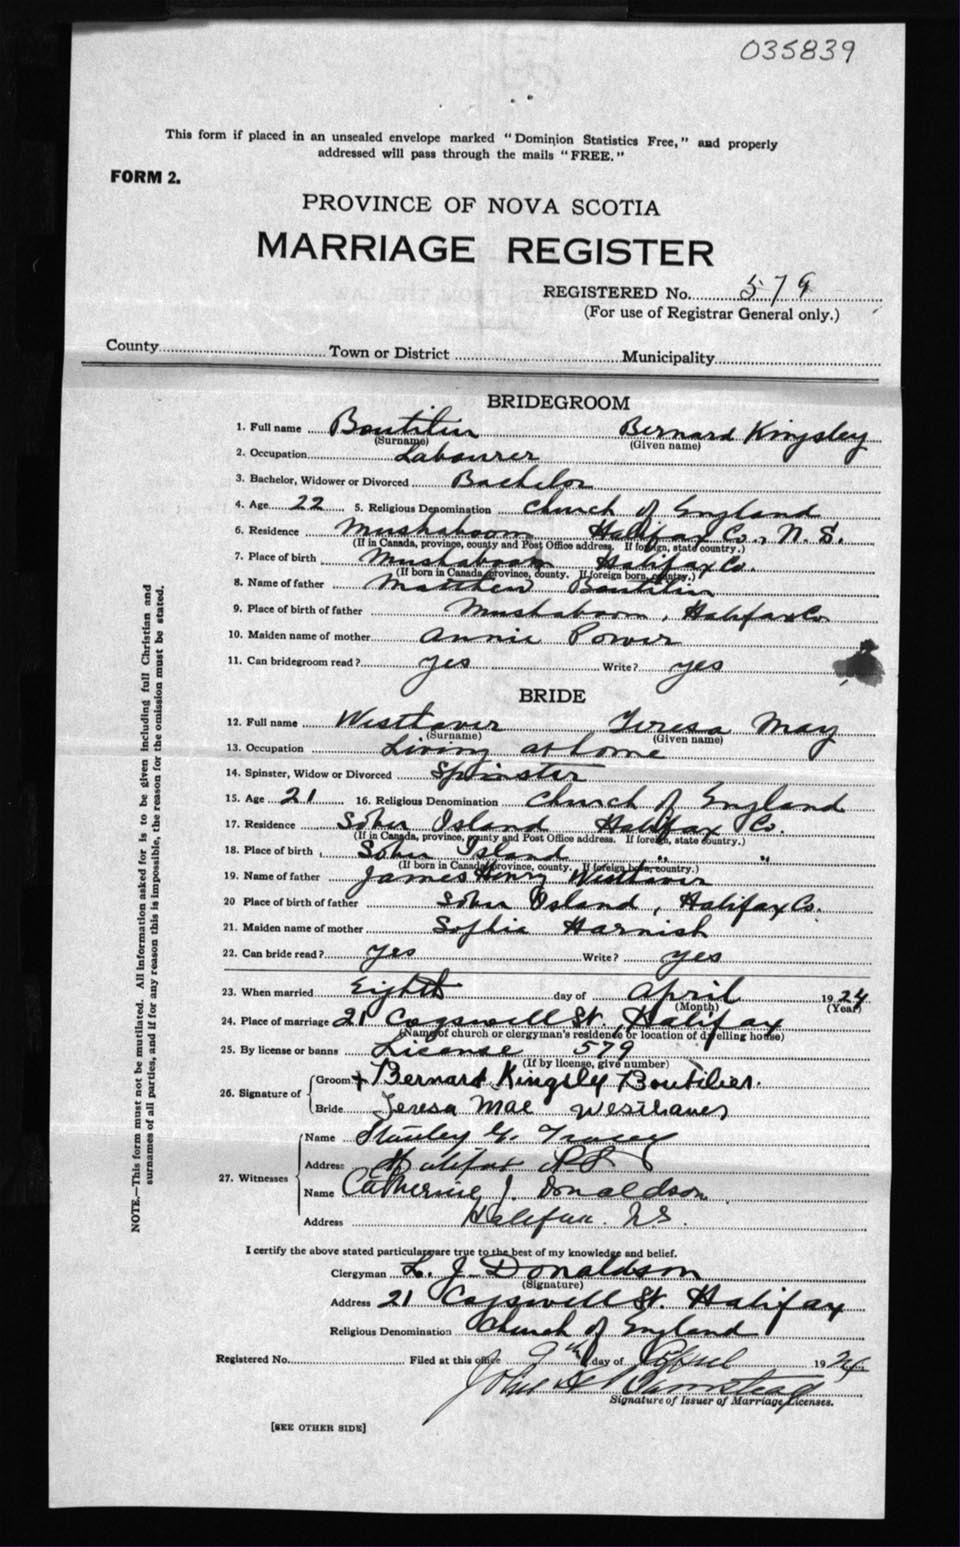 035839
This form if placed in an unsealed envelope marked "Dominion Statistics Free," and properly
addressed will pass through the mails "FREE."
FORM 2.
PROVINCE OF NOVA SCOTIA
MARRIAGE REGISTER
REGISTERED No. 579
(For use of Registrar General only.)
County Town or District Municipality
BRIDEGROOM
1. Full name Boutilier Bernard Kingsley
(Surname) (Given name)
2. Occupation Labourer
3. Bachelor, Widower or Divorced Bachelor
4. Age 22 5. Religious Denomination Church of England
6. Residence Mushaboom Halifax Co., N. S.
(If in Canada, province, county and Post Office address. If foreign, state country.)
7. Place of birth Mushaboom Halifax Co.
(If born in Canada province, county. If foreign born, country.)
8. Name of father Matthew Boutilier
9. Place of birth of father Mushaboom, Halifax Co
10. Maiden name of mother Annie Power
11. Can bridegroom read? yes Write? yes
BRIDE
12. Full name Westhaver Teresa May
(Surname) (Given name)
13. Occupation Living at home
14. Spinster, Widow or Divorced Spinster
15. Age 21 16. Religious Denomination Church of England
17. Residence Sober Island Halifax Co.
(If in Canada, province, county and Post Office address. If foreign, state country.)
18. Place of birth Sober Island " "
(If born in Canada province, county. If foreign born, country.)
19. Name of father James Henry Westhaver
20 Place of birth of father Sober Island, Halifax Co.
21. Maiden name of mother Sophia Harnish
22. Can bride read? yes Write? yes
23. When married Eighth day of April 1924
(Month) (Year)
24. Place of marriage 21 Cogswell St., Halifax
(Name of church or clergyman's residence or location of dwelling house)
25. By license or banns License 579
(If by license, give number)
26. Signature of Groom + Bernard Kingsly Boutilier.
Bride Teresa Mae Westhaver
27. Witnesses Name Stanley G. Tracey
Address Halifax N S
Name Catherine J. Donaldson
Address Halifax. N.S.
I certify the above stated particulars are true to the best of my knowledge and belief.
Clergyman L. J. Donaldson
(Signature)
Address 21 Cogswell St. Halifax
Religious Denomination Church of England
Registered No. Filed at this office 9th day of April 1924
John
Signature of Issuer of Marriage Licenses.
[SEE OTHER SIDE]
NOTE.—This form must not be mutilated. All information asked for is to be given including full Christian and
surnames of all parties, and if for any reason this is impossible, the reason for the omission must be stated.